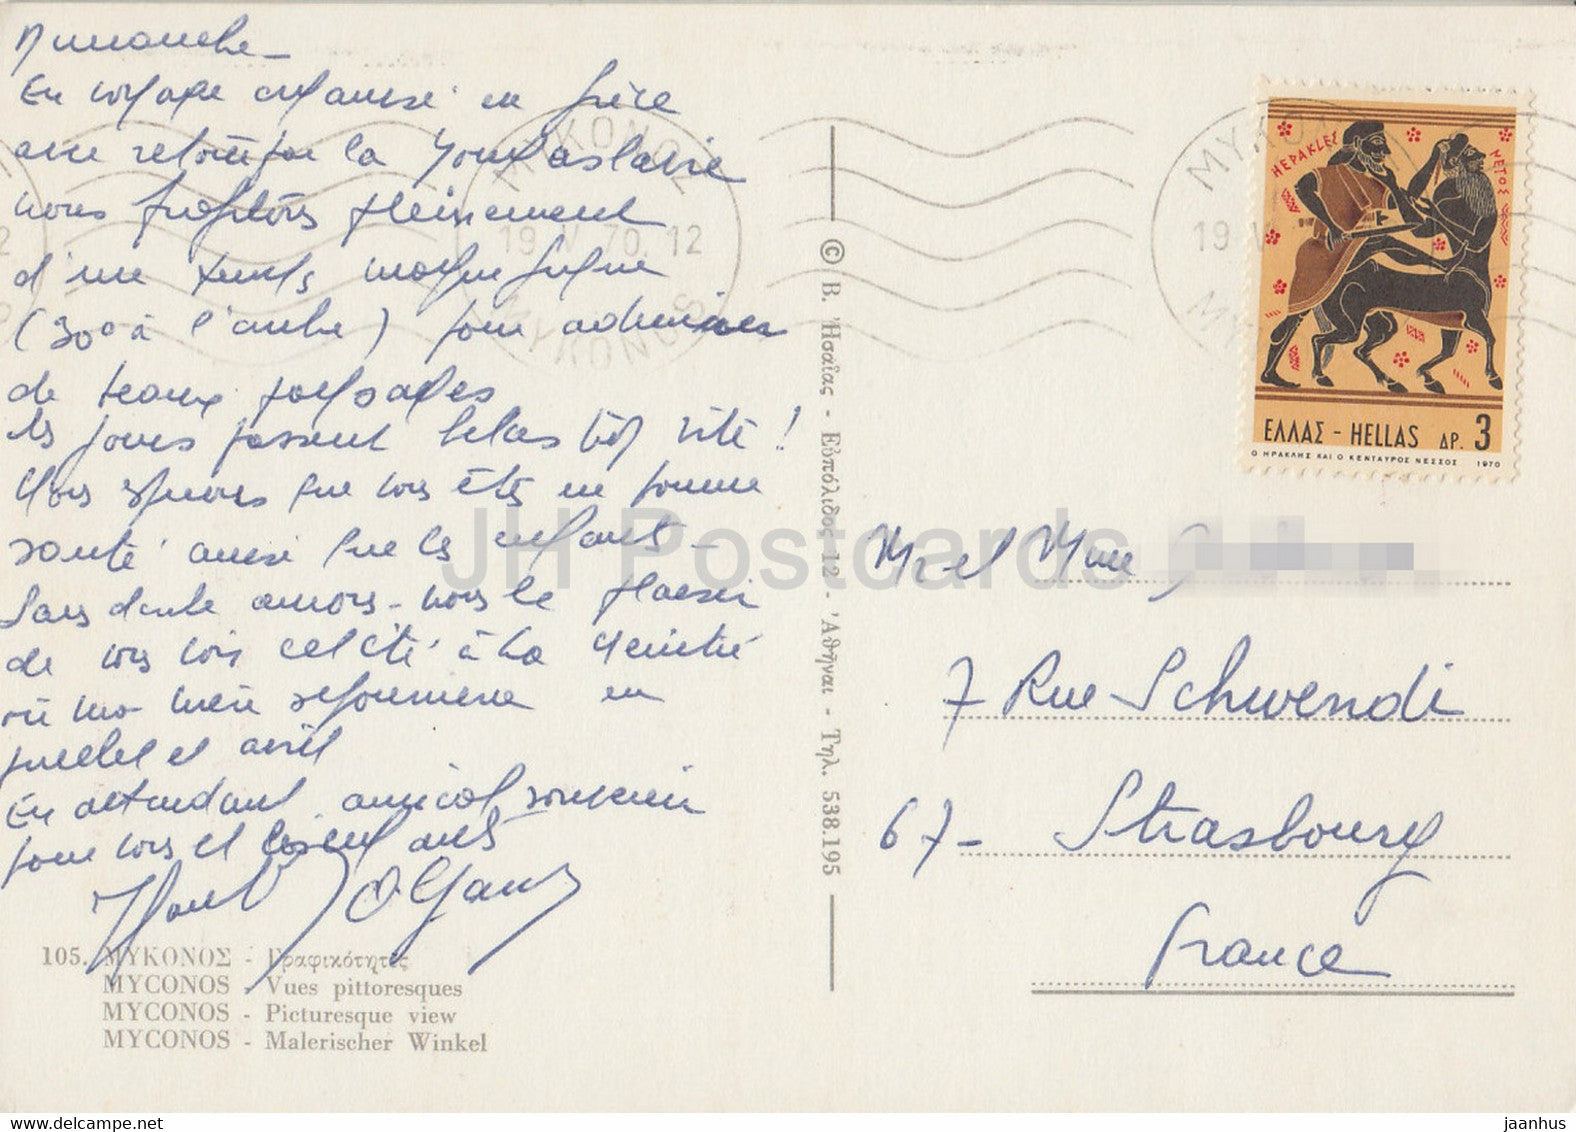 Dimanche -
En voyage organisé en Grèce
avec retour par la Yougoslavie
nous profitons pleinement
d'un temps magnifique
(30° à l'ombre) pour admirer
de beaux paysages
les jours passent hélas trop vite !
Nous espérons que vous êtes en bonne
santé ainsi que les enfants -
Sans doute aurons-nous le plaisir
de vous voir cet été à la
où ma mère séjournera en
juillet et août
En attendant, amical souvenir
pour vous et les enfants
105. ΜΥΚΟΝΟΣ - Γραφικότητες
MYCONOS - Vues pittoresques
MYCONOS - Picturesque view
MYCONOS - Malerischer Winkel
© Β. Ἡσαΐας - Εὐπόλιδος 12 - Ἀθῆναι - Τηλ. 538.195
MYKONOS
19 V 70. 12
ΜΥΚΟΝΟΣ
HERAKLES
ΝΕΤΟΣ
ΕΛΛΑΣ - HELLAS ΔΡ. 3
Ο ΗΡΑΚΛΗΣ ΚΑΙ Ο ΚΕΝΤΑΥΡΟΣ ΝΕΣΣΟΣ 1970
Mr et Mme
7 Rue Schwendi
67- Strasbourg
France
JH Postcards
jaanhus © www.delcampe.net